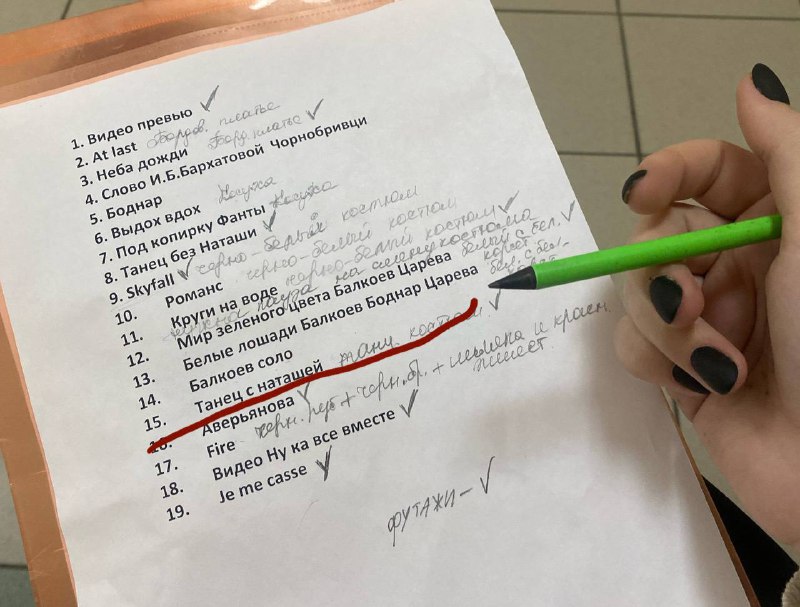 1. Видео превью ✓
2. At last Бордов. платье
3. Неба дожди Борд. платье ✓
4. Слово И.Б.Бархатовой Чорнобривци
5. Боднар
6. Выдох вдох Косуха
7. Под копирку Фанты Косуха
8. Танец без Наташи ✓
9. Skyfall ✓ черно-белый костюм
10. Романс черно-белый костюм
11. Круги на воде черно-белый костюм ✓
нужна пауза на смену костюма
12. Мир зеленого цвета Балкоев Царева белый с бел. ✓
13. Белые лошади Балкоев Боднар Царева корсет бел. с бел.
14. Балкоев соло
15. Танец с наташей танц. костюм ✓
16. Аверьянова ✓
17. Fire черн. + черн. бр. + и красн.
18. Видео Ну ка все вместе ✓
19. Je me casse ✓
ФУТАЖИ – ✓